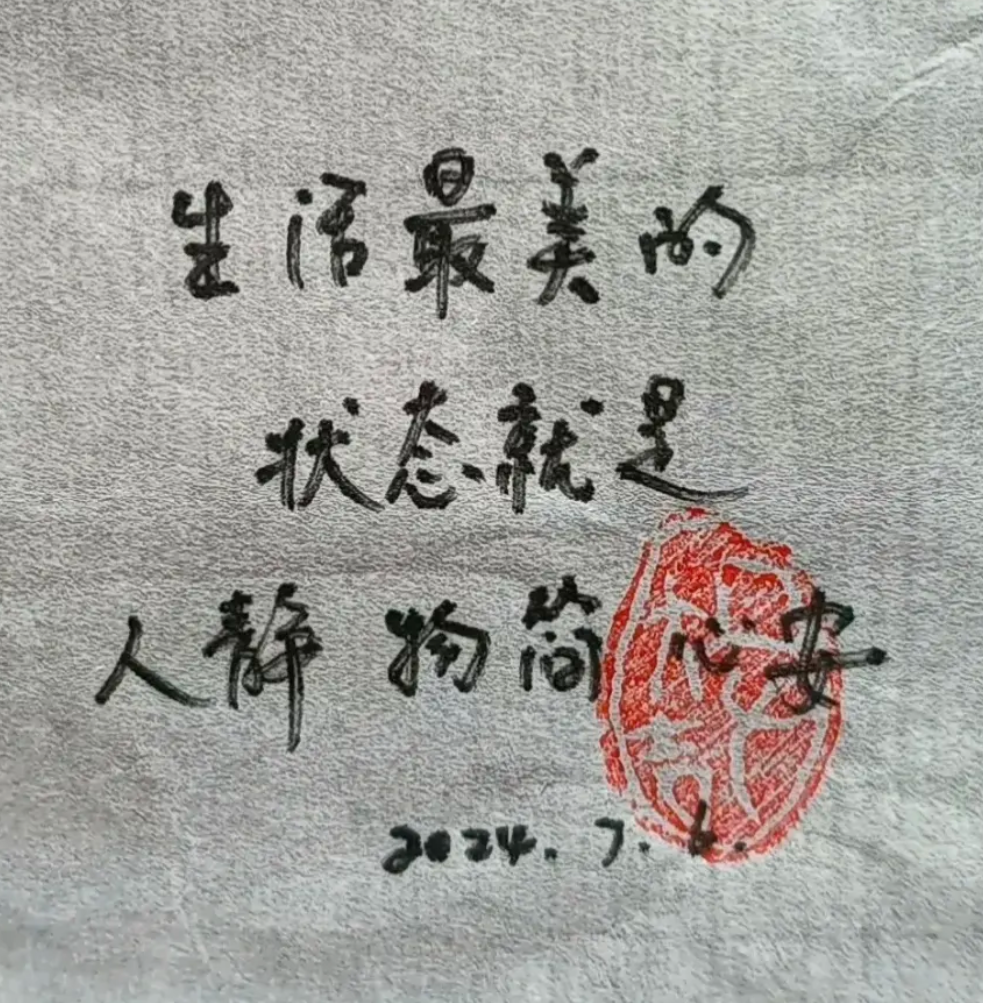 生活最美的
状态就是
人静 物简 心安
2024.7.6.